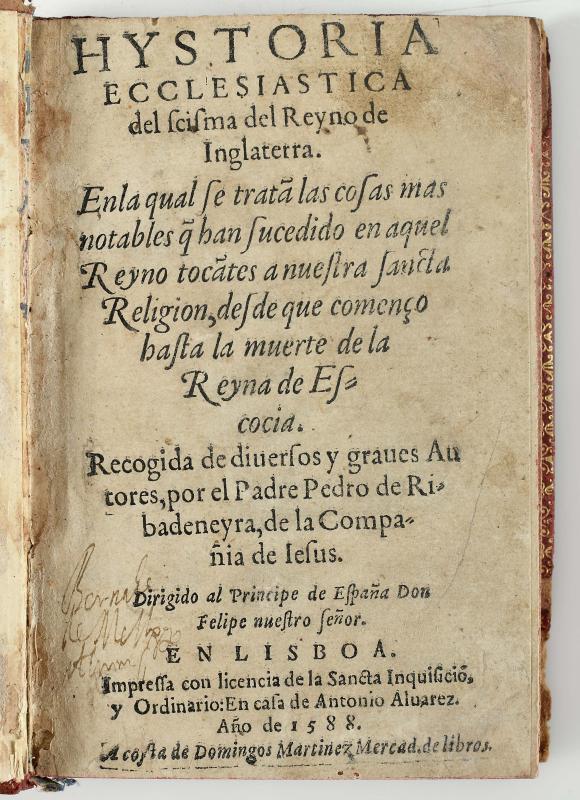 HYSTORIA
ECCLESIASTICA
del scisma del Reyno de
Inglaterra.
Enla qual se tratã las cosas mas
notables q̃ han sucedido en aquel
Reyno tocãtes a nuestra sancta
Religion, desde que començo
hasta la muerte de la
Reyna de Es-
cocia.
Recogida de diuersos y graues Au
tores, por el Padre Pedro de Ri-
badeneyra, de la Compa-
ñia de Iesus.
Dirigido al Principe de España Don
Felipe nuestro señor.
EN LISBOA.
Impressa con licencia de la Sancta Inquisiciõ,
y Ordinario: En casa de Antonio Aluarez.
Año de 1588.
A costa de Domingos Martinez Mercad. de libros.